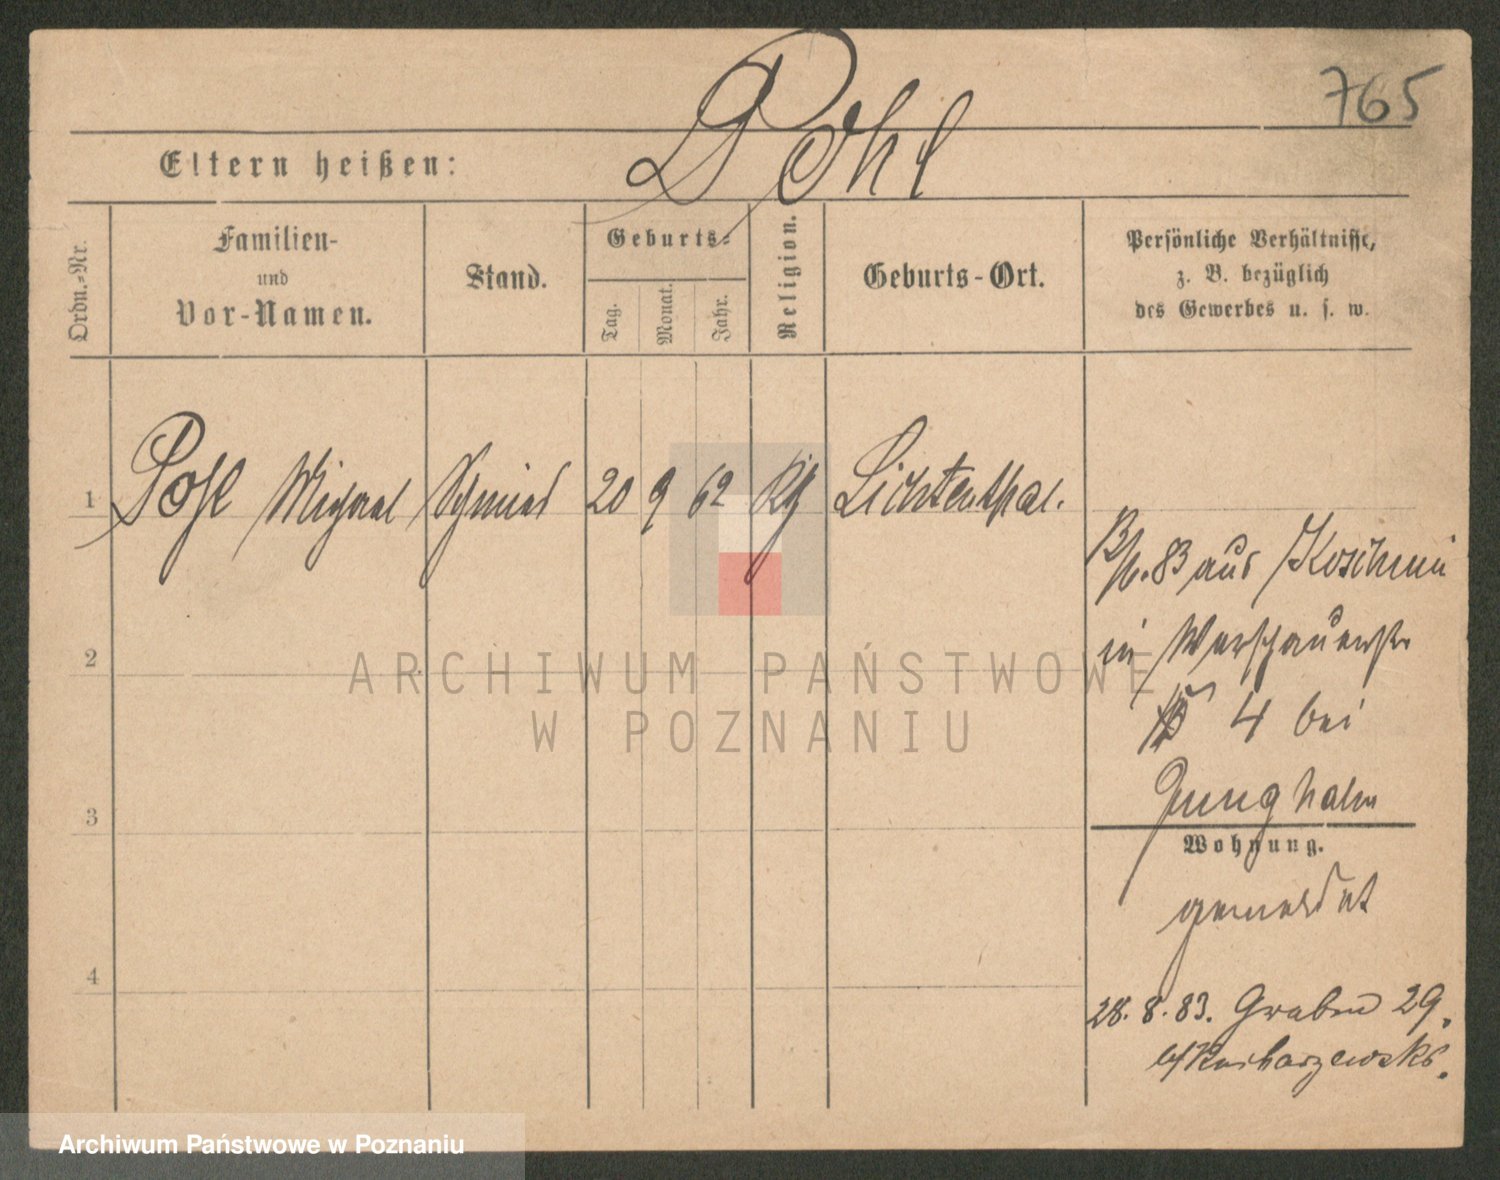 765
Pohl
Eltern heißen:
Ordn.-Nr.
Familien-
und
Vor-Namen.
Stand.
Geburts-
Tag.
Monat.
Jahr.
Religion.
Geburts-Ort.
Persönliche Verhältnisse,
z. B. bezüglich
des Gewerbes u. s. w.
1 Pohl Michael Schmied 20 9 62 Kth Lichtenthal.
83 aus Koschmin
in Warschauerstr
4 bei
Junghahn
Wohnung.
gemeldet
28. 8. 83. Graben 29.
b/
2
3
4
ARCHIWUM PAŃSTWOWE
W POZNANIU
Archiwum Państwowe w Poznaniu